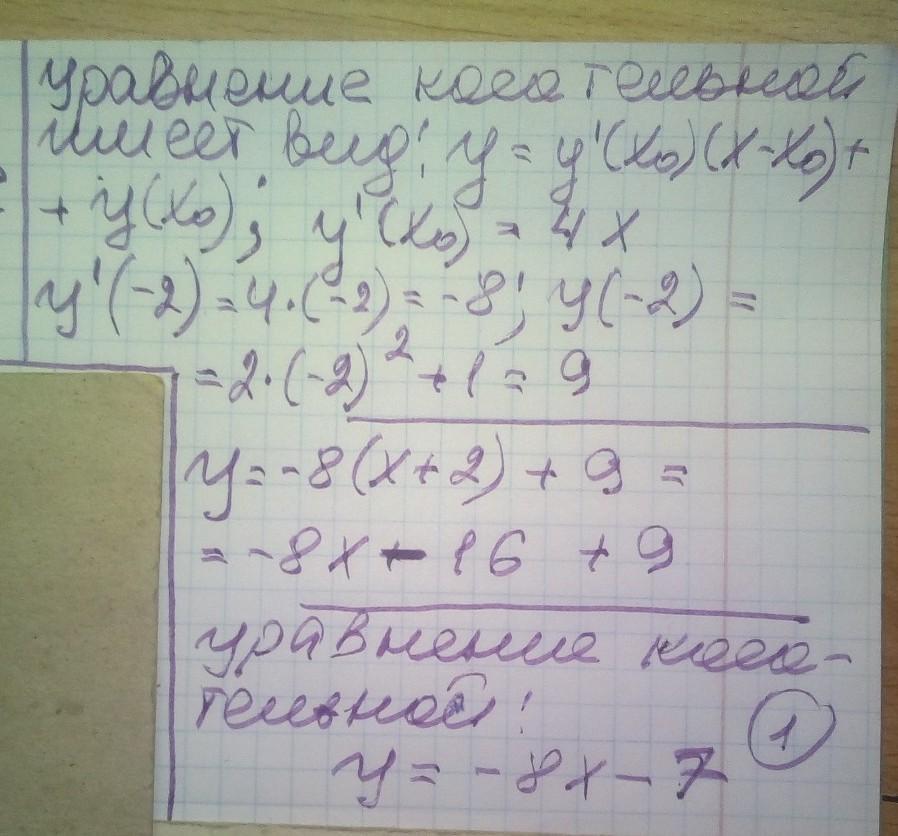 уравнение касательной
имеет вид: y = y'(x₀)(x-x₀)+
+ y(x₀); y'(x₀) = 4x
y'(-2)=4·(-2)=-8; y(-2) =
=2·(-2)²+1=9
y=-8(x+2)+9=
=-8x-16+9
уравнение каса-
тельной:
y=-8x-7
1